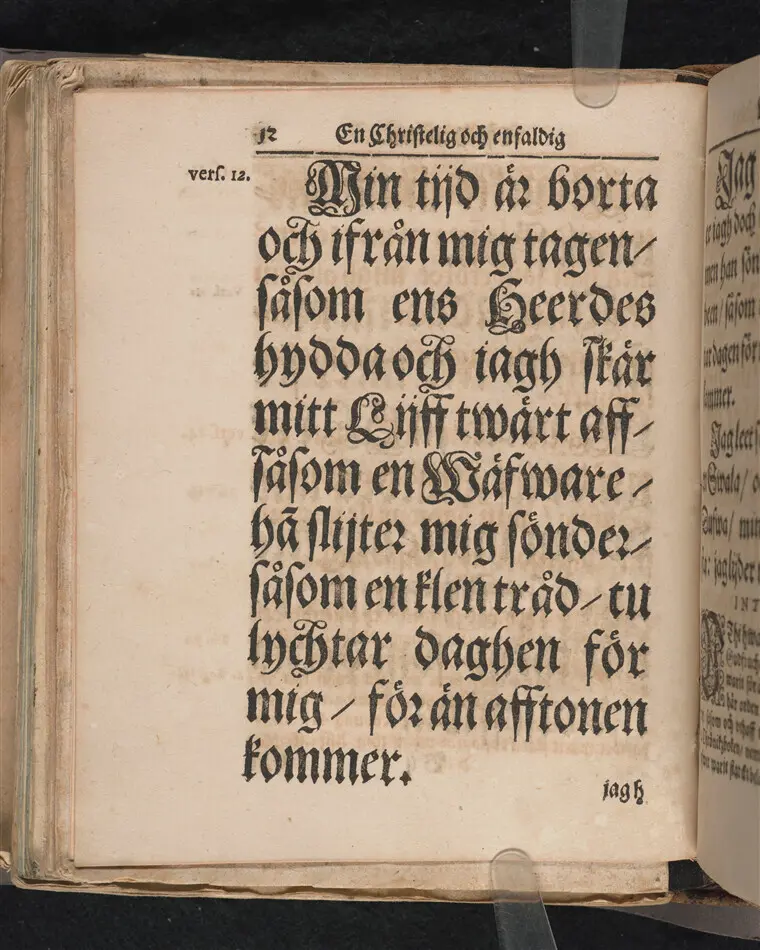 12 En Christelig och enfaldig
vers. 12.
Min tijd är borta
och ifrån mig tagen/
såsom ens Heerdes
hydda och iagh skär
mitt Lijff twärt aff/
såsom en Wäfware/
hā slijter mig sönder/
såsom en klen tråd/ tu
lychtar daghen för
mig/ för än afftonen
kommer.
jagh
Jag
iagh doch
men han sön
såsom
dagen för
Jag leet s
Swala/
min
INT